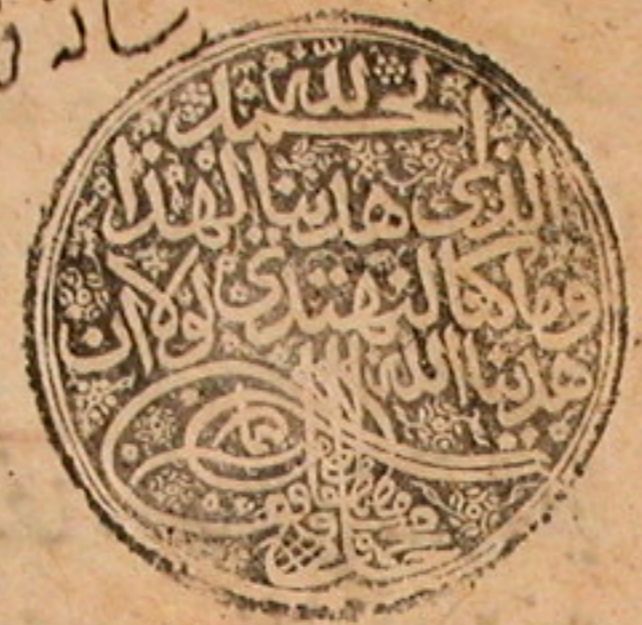 رسالة
الحمد لله
الذى هدينا لهذا
وما كنا لنهتدي لولا ان
هدينا الله